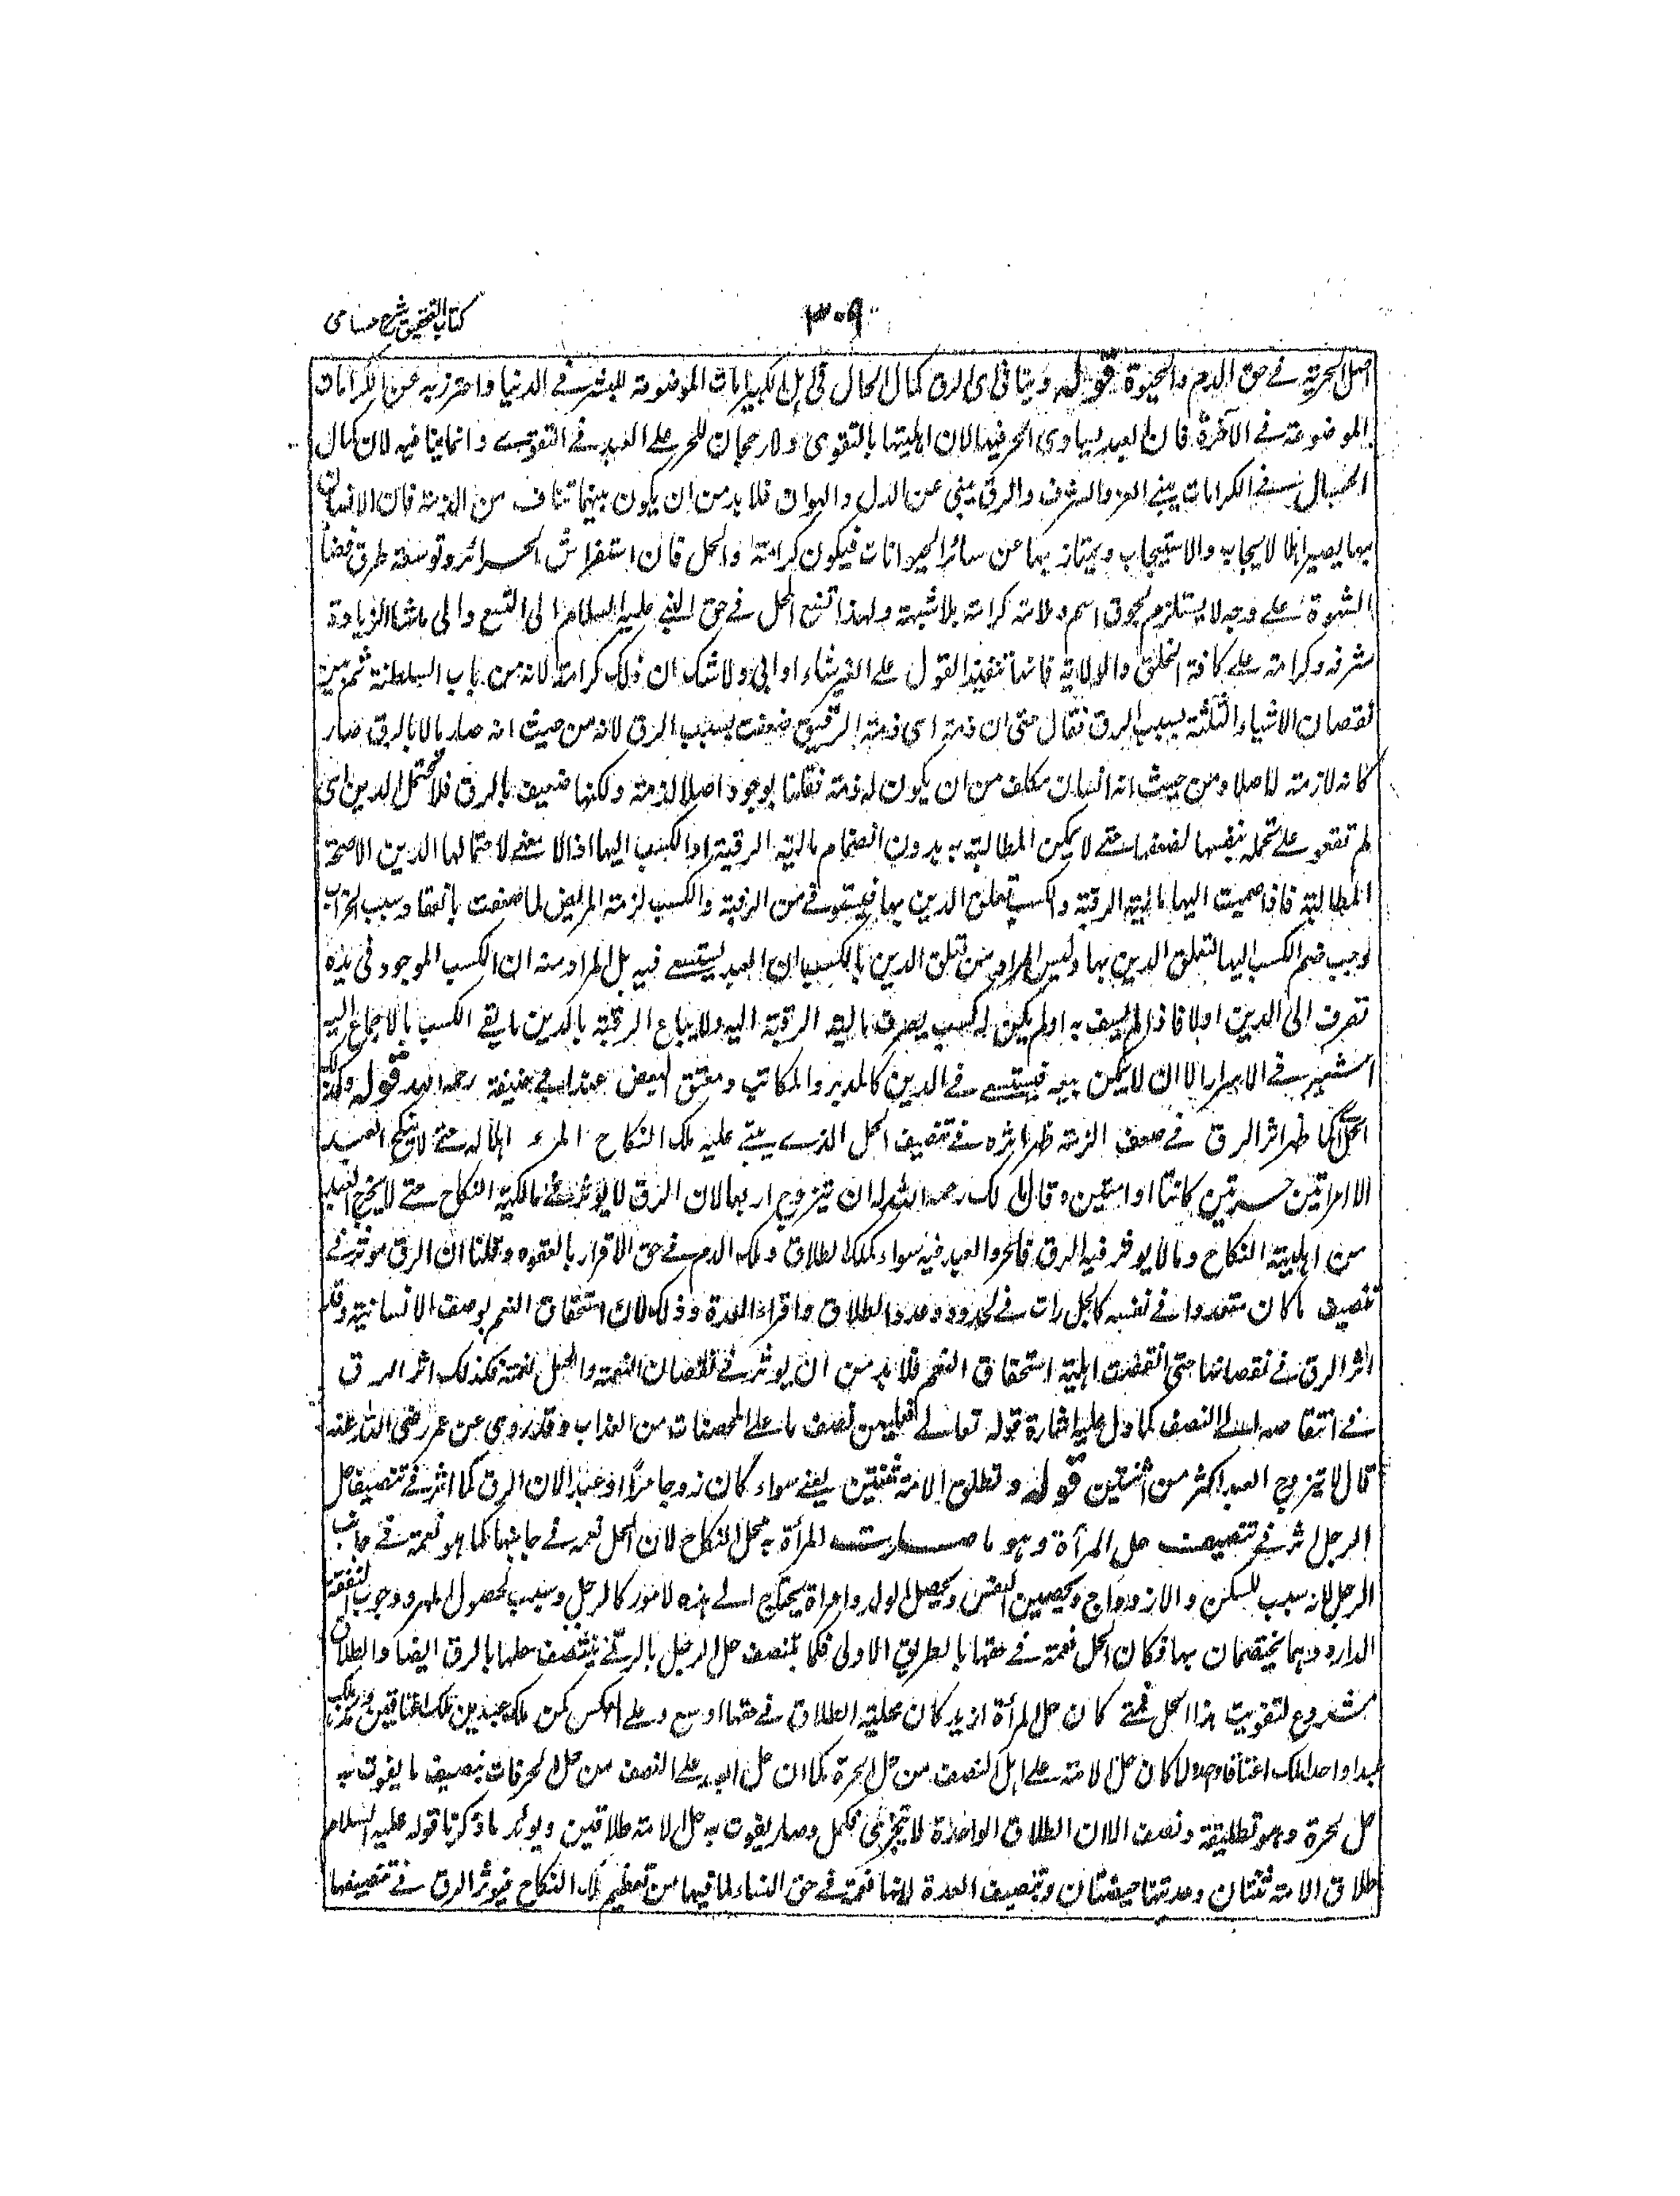 كتاب التحقيق شرح حسامي
٣٠٩
اصل الحرية في حق الدم والحيوة قوله وينافى اى الرق كمال الحال فى اهل الكرامات الموضوعة للبشر في الدنيا واحترز به عن الكرامات
الموضوعة في الآخرة فان العبد يساوى الحر فيها لان اهليتها بالتقوى ولا رجحان للحر على العبد في التقوى وانما ينافيه لان كمال
الحال في الكرامات يبنى عن العز والشرف والرق يبنى عن الذل والهوان فلا بد من ان يكون بينهما تناف من الذمة فان الانسان
بها يصير اهلا لايجاب والاستيجاب ويمتاز بها عن سائر الحيوانات فيكون كرامة والحل فان استفراش الحرائر وتوسعة طرق قضاء
الشهوة على وجه لا يستلزم لحوق اسم وملامة كرامة بلا شبهة ولهذا اتسع الحل في حق النبي عليه السلام الى التسع والى ما شاء الزيادة
شرفه وكرامته على كافة الخلق والولاية فانها تنفيذ القول على الغير شاء او ابى ولا شك ان ذلك كرامة لانه من باب السلطنة ثم بين
نقصان الاشياء الثلثة بسبب الرق فقال حتى ان ذمته اى ذمة الرقيق ضعفت بسبب الرق لانه من حيث انه صار مالا بالرق صار
كانه لا ذمة له اصلا ومن حيث انه انسان مكلف من ان يكون له ذمة فقلنا بوجود اصل الذمة ولكنها ضعيف بالرق فلا تحتمل الدين اى
لم تقو على تحمله بنفسها لضعفها حتى لا يمكن المطالبة به بدون انضمام مالية الرقبة او الكسب اليها اذ لا معنى لاحتمالها الدين الا صحة
المطالبة فاذا ضمت اليها مالية الرقبة والكسب تعلق الدين بها فيستوفى من الرقبة والكسب لذمة المريض لما ضعفت بانعقاد سبب الخراب
وجب ضم الكسب اليها لتعلق الدين بها وليس المراد من تعلق الدين بالكسب ان العبد يستسعى فيه بل المراد منه ان الكسب الموجود فى يده
تصرف الى الدين اولا فاذا لم يف به او لم يكن له كسب يصرف مالية الرقبة اليه ولا يباع الرقبة بالدين ما بقى الكسب بالاجماع اليه
اشير في الاسرار الا ان لا يمكن بيعه فيستسعى في الدين كالمدبر والمكاتب ومعتق البعض عند ابى حنيفة رحمه الله قوله وكذلك
الحل اى كما ظهر اثر الرق في ضعف الذمة ظهر اثره في تنصيف الحل الذى يبتنى عليه ملك النكاح المرء اهلا له حتى لا ينكح العبد
الا امراتين حرتين كانتا او امتين وقال مالك رحمه الله له ان يتزوج اربعا لان الرق لا يؤثر في مالكية النكاح حتى لا يخرج العبد
من اهلية النكاح وما لا يؤثر فيه الرق فالحر والعبد فيه سواء كملك الطلاق وملك الدم في حق الاقرار بالعقود وقلنا ان الرق مؤثر في
تنصيف ما كان متعددا في نفسه كالجلدات في الحدود وعدد الطلاق واقراء العدة وذلك لان استحقاق النعم بوصف الانسانية وقد
اثر الرق في نقصانها حتى انتقصت اهلية استحقاق النعم فلا بد من ان يؤثر في نقصان النعمة والحل نعمة فكذلك اثر الرق
في انتقاصه الى النصف كما دل عليه اشارة قوله تعالى فعليهن نصف ما على المحصنات من العذاب وقد روى عن عمر رضى الله عنه
قال لا يتزوج العبد اكثر من اثنتين قوله وتطلق الامة ثنتين يعنى سواء كان زوجها حرا او عبدا لان الرق كما اثر في تنصيف حل
الرجل اثر في تنصيف حل المرأة وهو ما صارت المرأة به محل النكاح لان الحل نعمة في جانبها كما هو نعمة في جانب
الرجل لانه سبب للسكن والازدواج وتحصين النفس وتحصيل الولد والمراة يحتاج الى هذه الامور كالرجل وسبب لحصول المهر ووجوب النفقة
الدارة وهما يختصان بها وكان الحل نعمة في حقها بالطريق الاولى فكما تنصف حل الرجل بالرق يتنصف حلها بالرق ايضا والطلاق
مشروع لتفويت هذا الحل فمتى كان حل المرأة ازيد كان محلية الطلاق في حقها اوسع وعلى العكس كمن ملك عبدين ملك اعتاقين ومن ملك
عبدا واحدا ملك اعتاقا واحدا ولما كان حل الامة على النصف من حل الحرة كما ان حل العبد على النصف من حل الحر فات بنصيف ما يفوت به
حل الحرة وهو تطليقة ونصف الا ان الطلاق الواحدة لا يتجزى فكمل وصار يفوت به حل الامة طلاقين ويؤيد ما ذكرنا قوله عليه السلام
طلاق الامة ثنتان وعدتها حيضتان وتنصيف العدة لانها نعمة في حق النساء لما فيها من تعظيم ملك النكاح فيؤثر الرق في تنصيفها